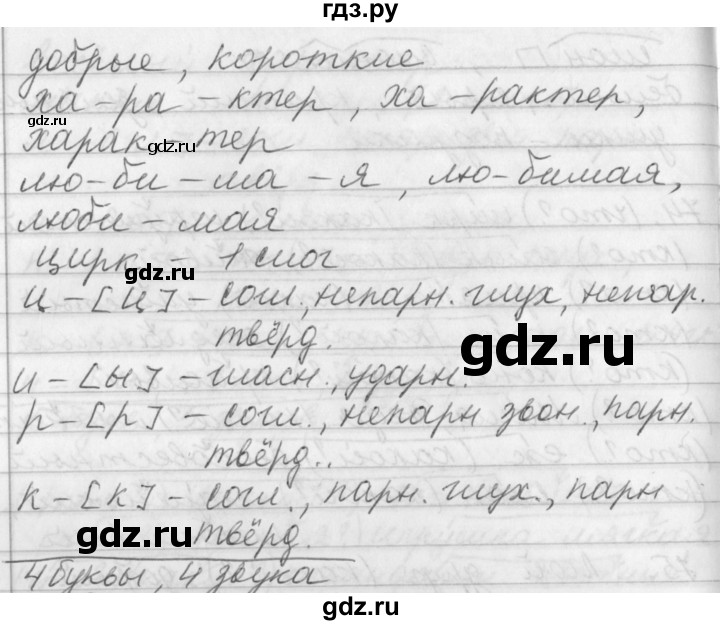 гдз.ру
добрые, короткие
gdz.ru
gdz.ru
ха-ра-ктер, ха-рактер,
харак-тер
лю-би-ма-я, лю-бимая,
люби-мая
цирк - 1 слог
gdz.ru
ц-[ц]-согл., непарн. глух, непар.
твёрд.
gdz.ru
и-[ы]-гласн., ударн.
р-[р]-согл., непарн звон., парн.
твёрд..
к-[к]-согл., парн. глух., парн
gdz.ru
твёрд.
4 буквы, 4 звука
gdz.ru